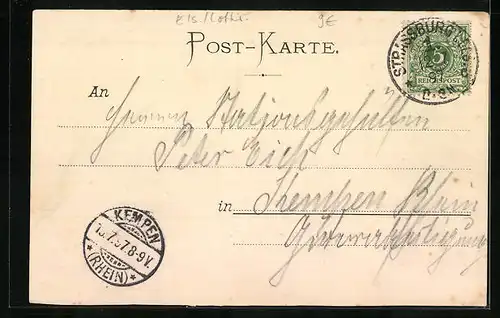 Els./Lothr. 9€
POST-KARTE.
STRASSBURG
5
REICHSPOST
An
Herrn Stationsgehülfen
Peter Eich
in Kempen Rhein
Güterabfertigung
KEMPEN
15.7.97.8-9V.
* (RHEIN) *